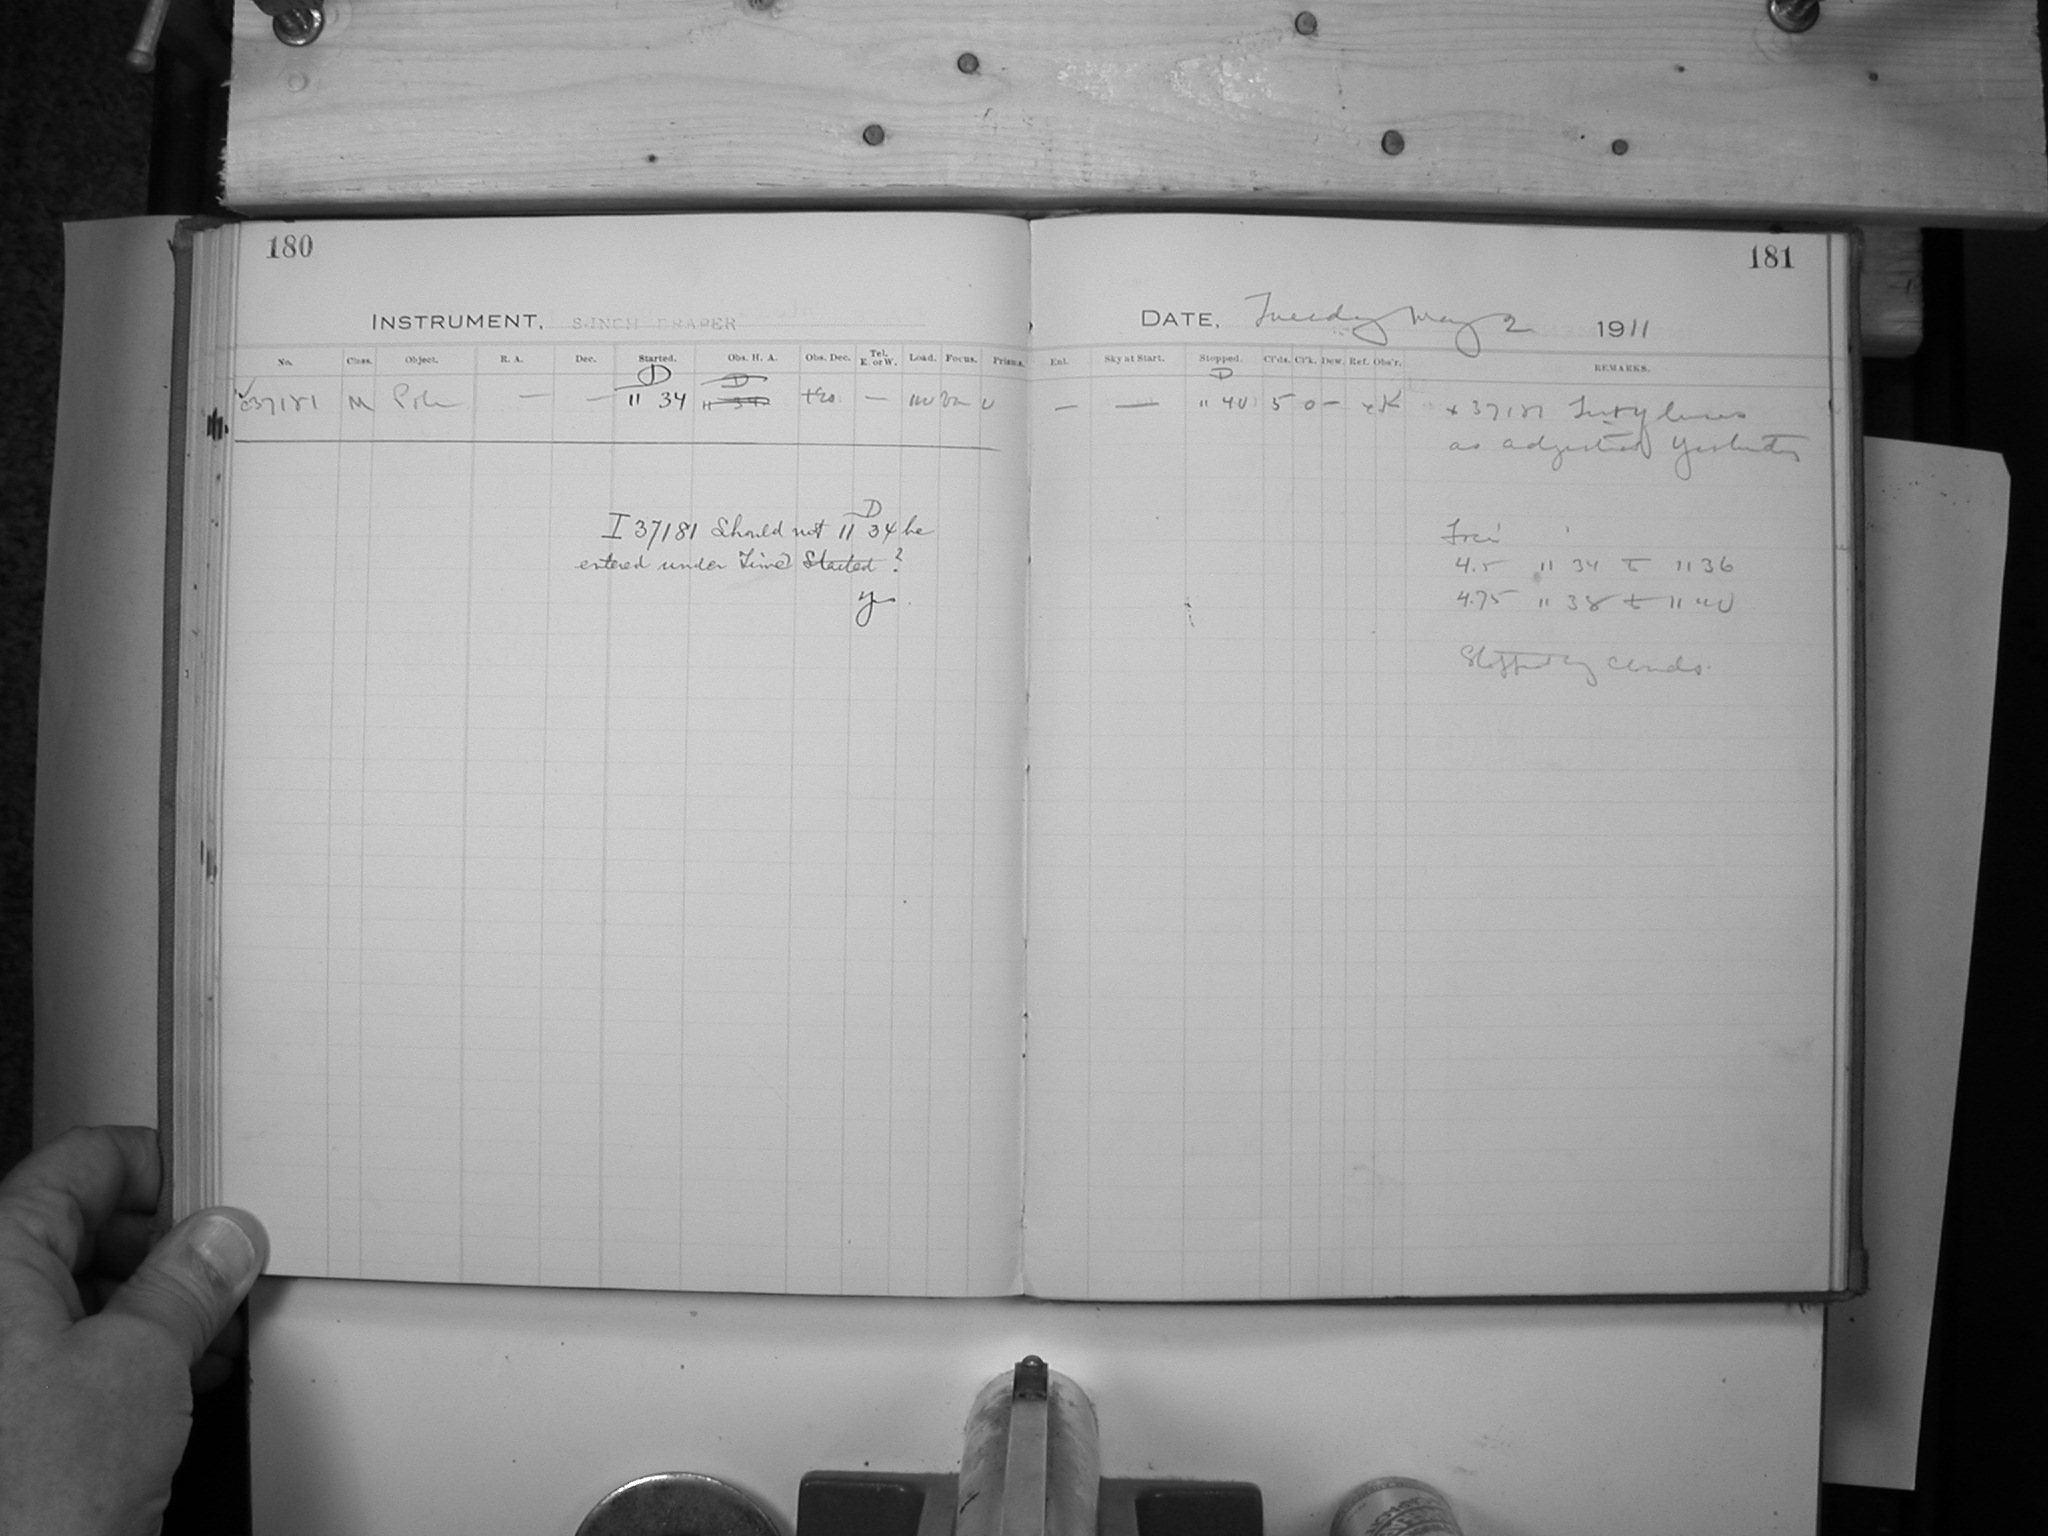 180
181
INSTRUMENT, 8-INCH DRAPER
DATE, Tuesday May 2 1911
No. Class. Object. R. A. Dec. Started. Obs. H. A. Obs. Dec. Tel. E. or W. Load. Focus. Prisms. Enl. Sky at Start. Stopped. Cl'ds. Cl'k. Dew. Ref. Obs'r. REMARKS.
D D D
37181 M Pole — — 11 34 11 34 — — — 11 40 5 0 — 37181
as adjusted yesterday
D
I 37181 Should not 11 34 be
entered under Time Started?
yes.
4.5 11 34 11 36
4.75 11 38 11 40
Stopped by clouds.